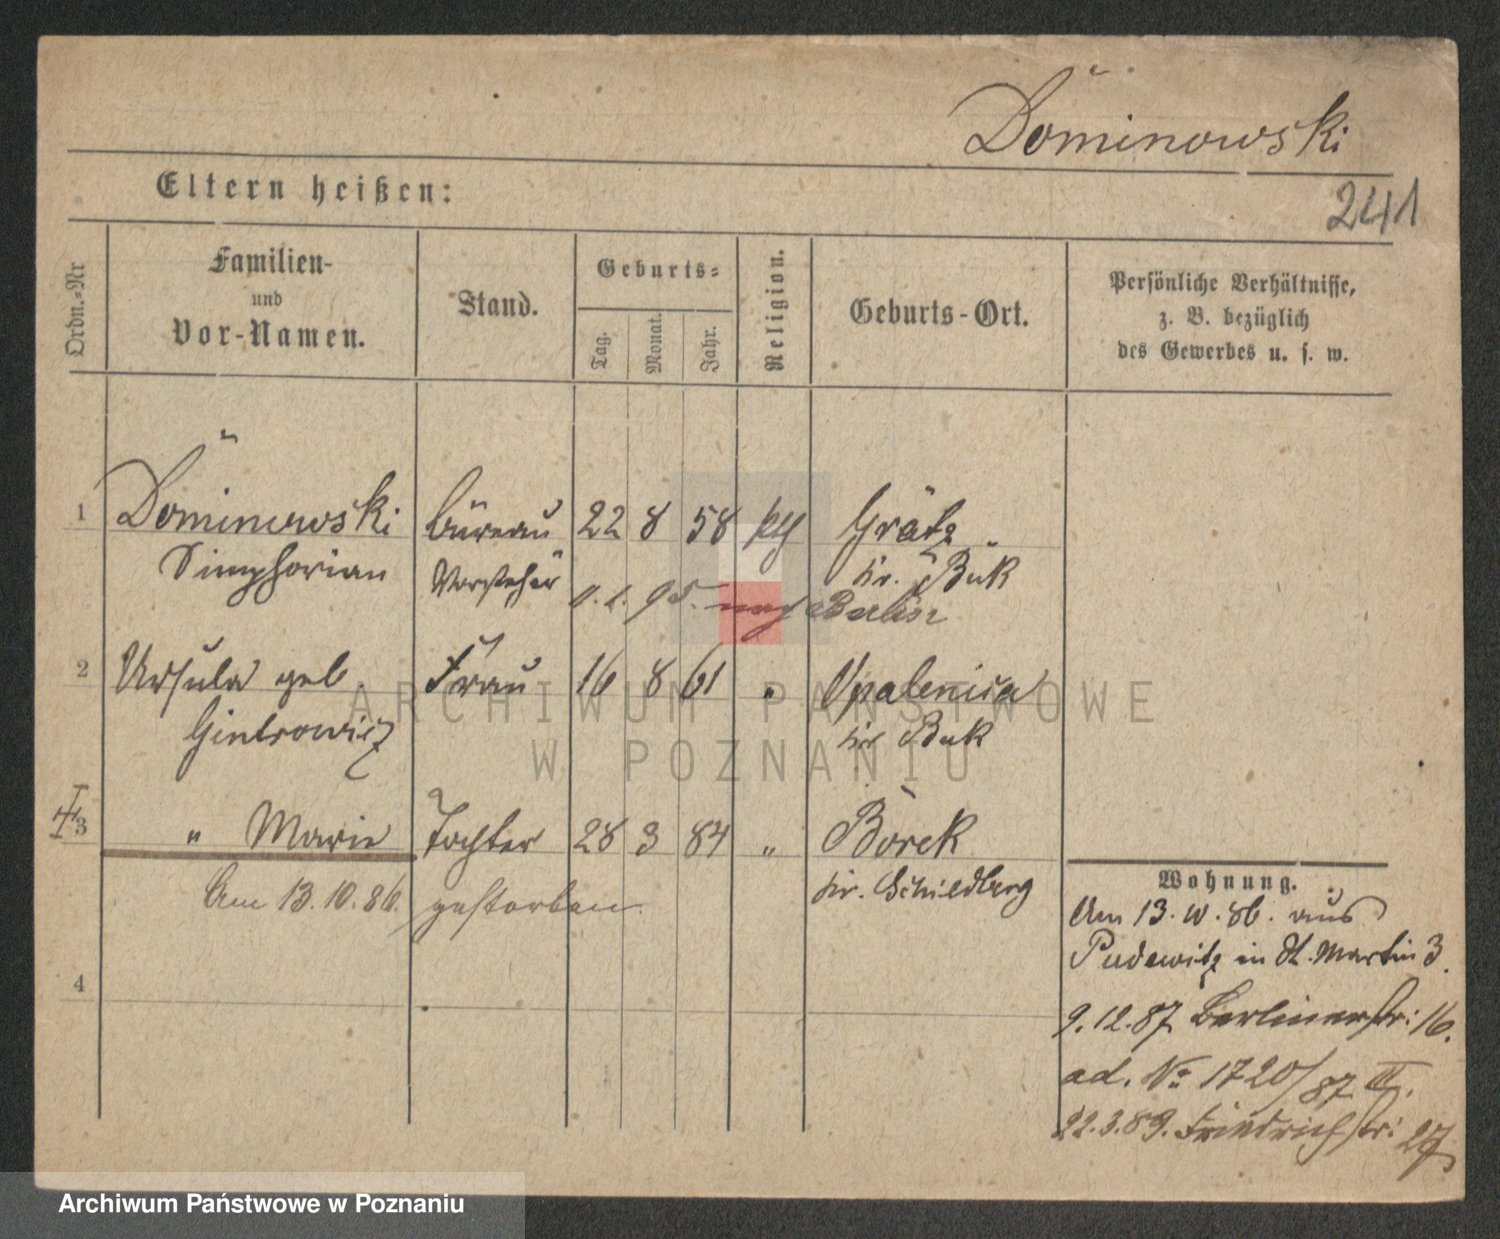 Dominowski
241
Eltern heißen:
Ordn.-Nr
Familien-
und
Vor-Namen.
Stand.
Geburts-
Tag.
Monat.
Jahr.
Religion.
Geburts-Ort.
Persönliche Verhältnisse,
z. B. bezüglich
des Gewerbes u. s. w.
1 Dominowski Büreau 22 8 58 kth Grätz
Simphorian Vorsteher Kr. Buk
95. nach Berlin
2 Ursula geb. Frau 16 8 61 " Opalenica
Gintrowicz Kr Buk
3 " Marie Tochter 28 3 84 " Borek
Am 13.10.86. gestorben. Kr. Schildberg
4
Wohnung.
Am 13. 10. 86. aus
Pudewitz in St. Martin 3.
9.12.87 Berlinerstr: 16.
ad. No 1720/87 II.
22.3.89. Friedrichstr: 27
ARCHIWUM PAŃSTWOWE
W POZNANIU
Archiwum Państwowe w Poznaniu